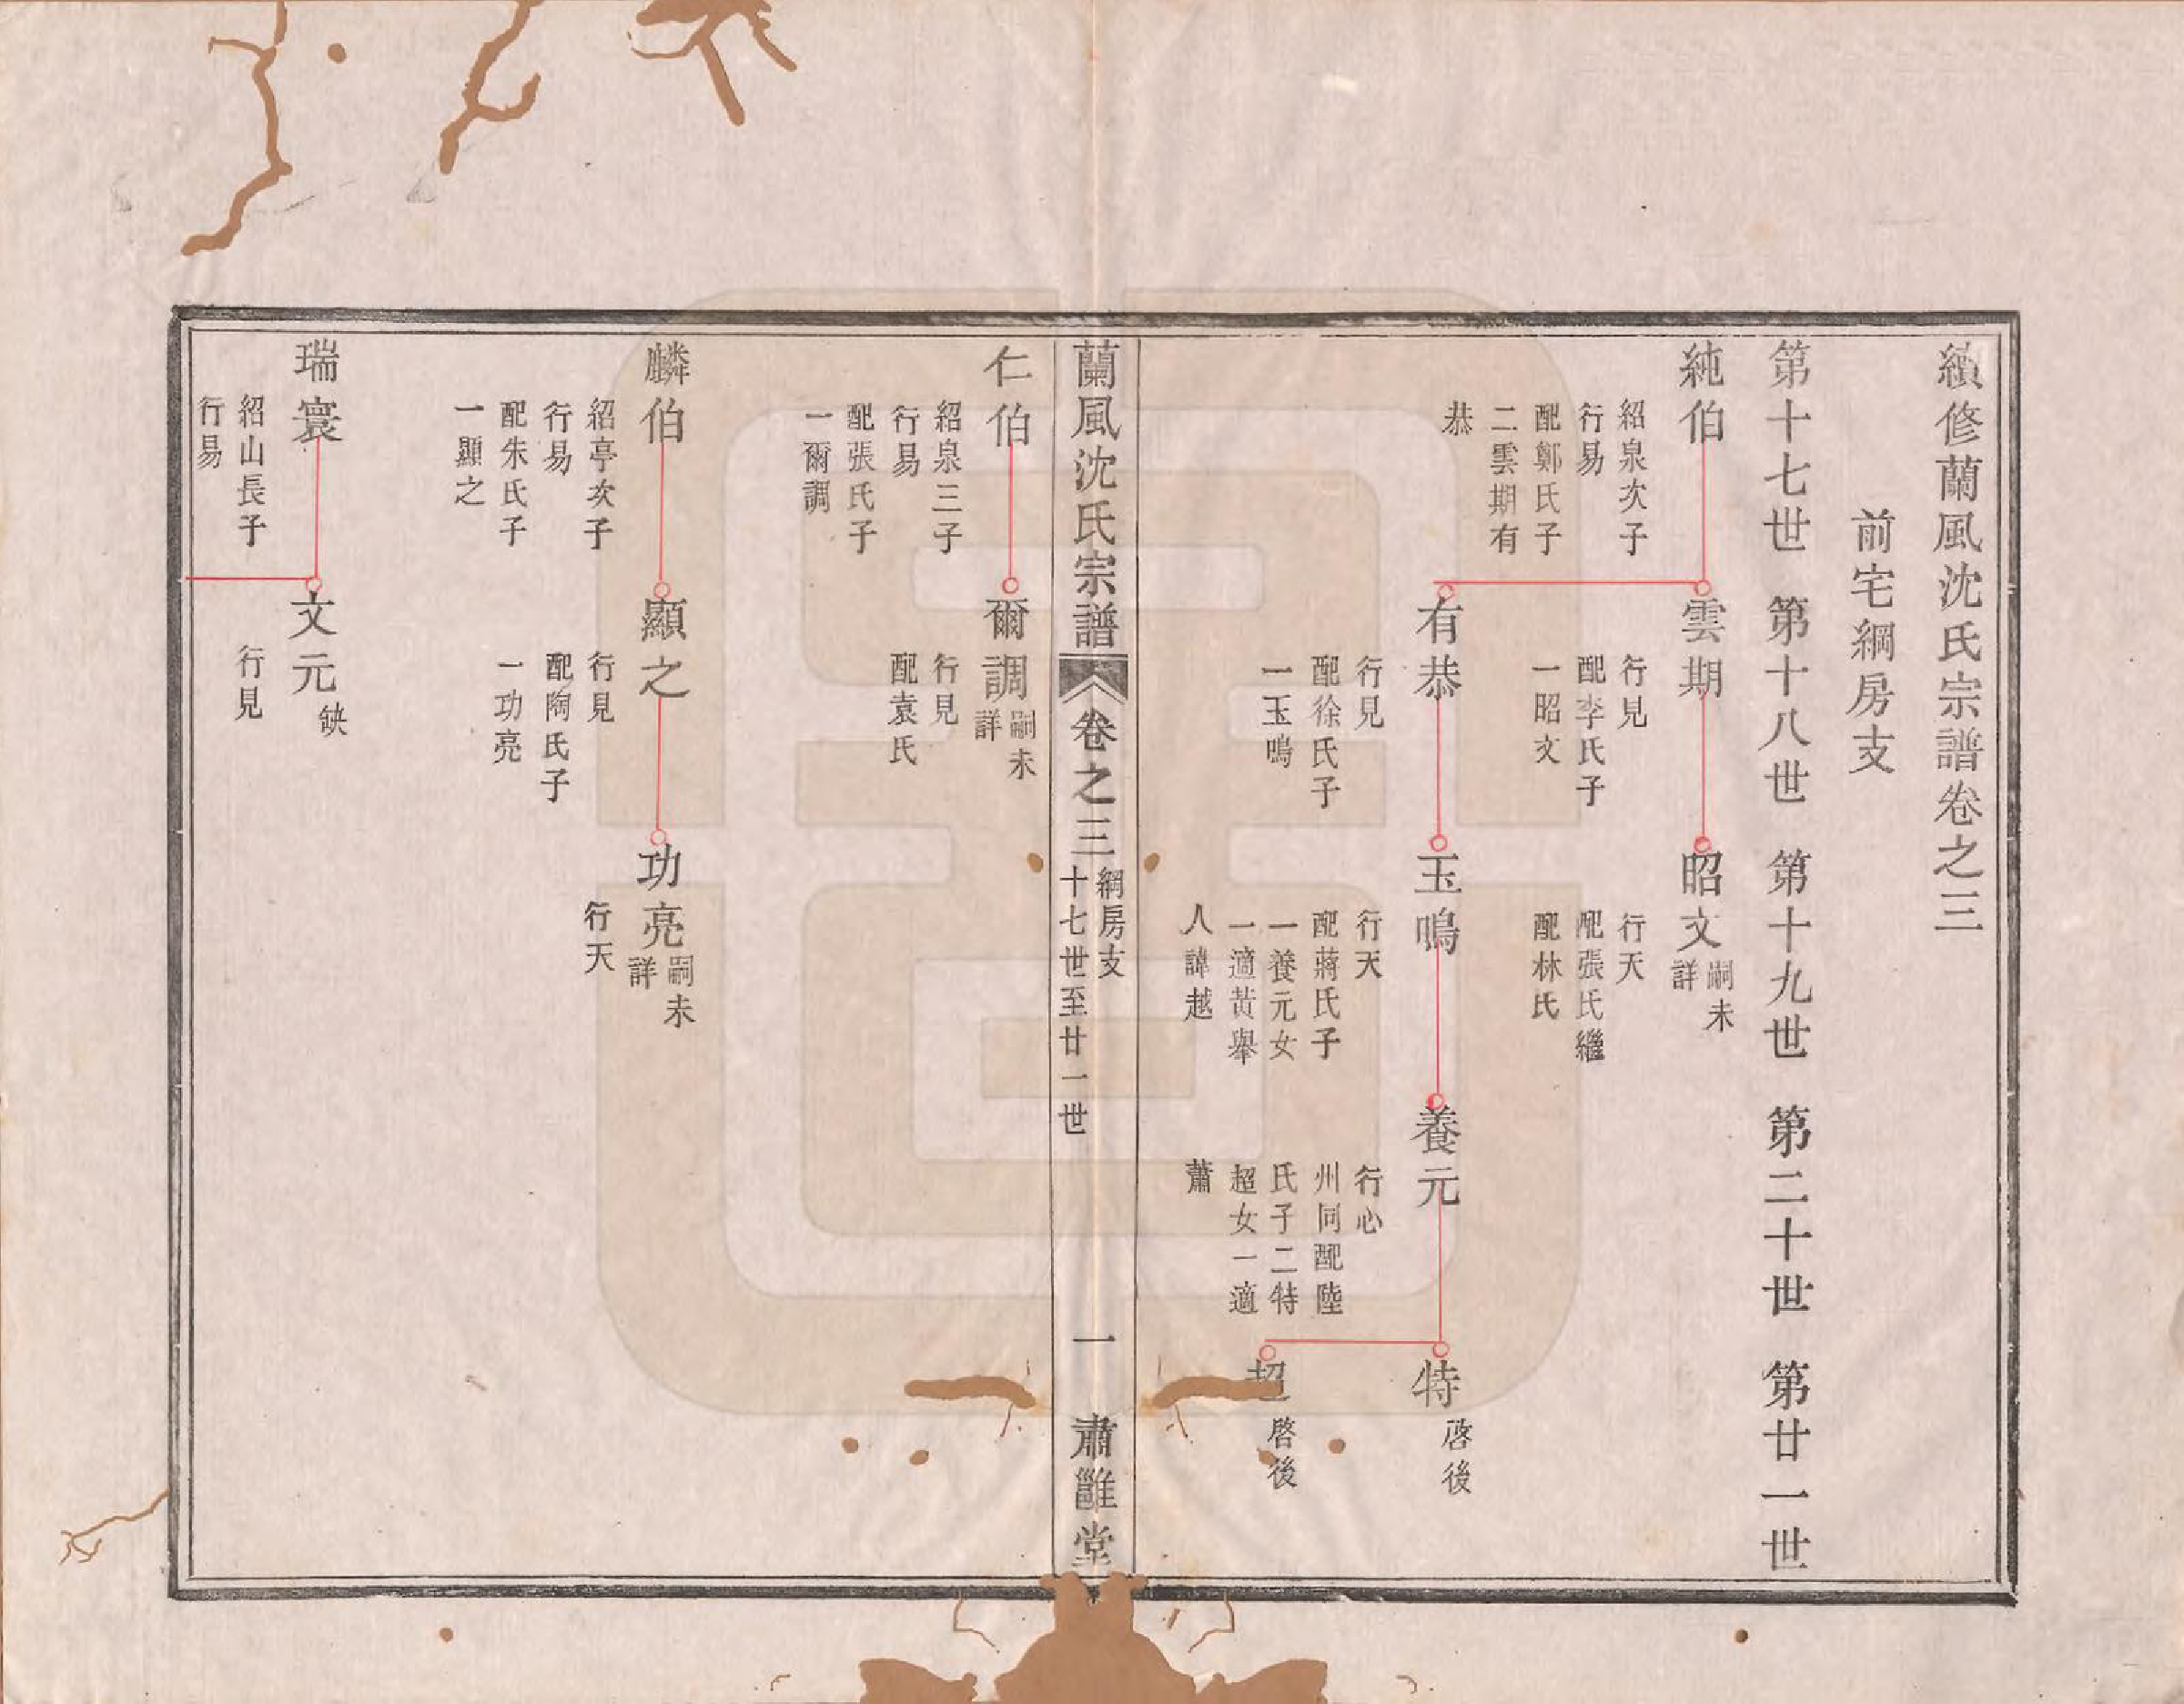 續修蘭風沈氏宗譜卷之三
前宅綱房支
第十七世　第十八世　第十九世　第二十世　第廿一世
純伯
紹泉次子
行易
配鄭氏子
二雲期有
恭
雲期
行見
配李氏子
一昭文
昭文
嗣未
詳
行天
配張氏繼
配林氏
有恭
行見
配徐氏子
一玉鳴
玉鳴
行天
配蔣氏子
一養元女
一適黃舉
人諱越
養元
行心
州同配陸
氏子二特
超女一適
蕭
特
啓後
超
啓後
蘭風沈氏宗譜
卷之三
綱房支
十七世至廿一世
一
肅雝堂
仁伯
紹泉三子
行易
配張氏子
一爾調
爾調
嗣未
詳
行見
配袁氏
麟伯
紹亭次子
行易
配朱氏子
一顯之
顯之
行見
配陶氏子
一功亮
功亮
嗣未
詳
行天
瑞寰
紹山長子
行易
文元
缺
行見